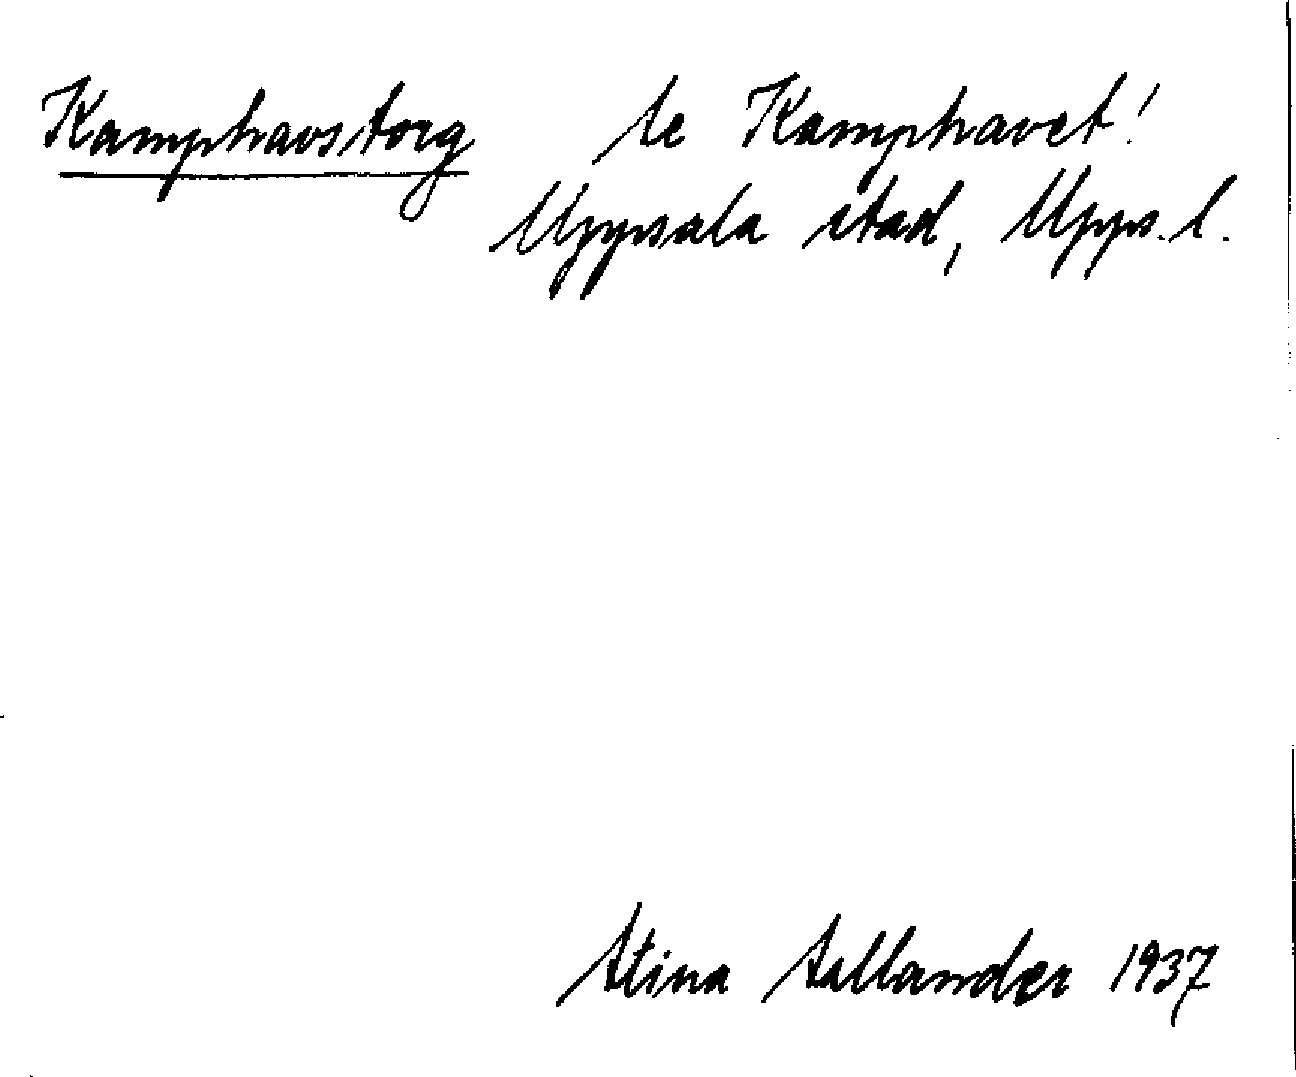 Kamphavstorg se Kamphavet!
Uppsala stad, Upps.l.
Stina Sallander 1937